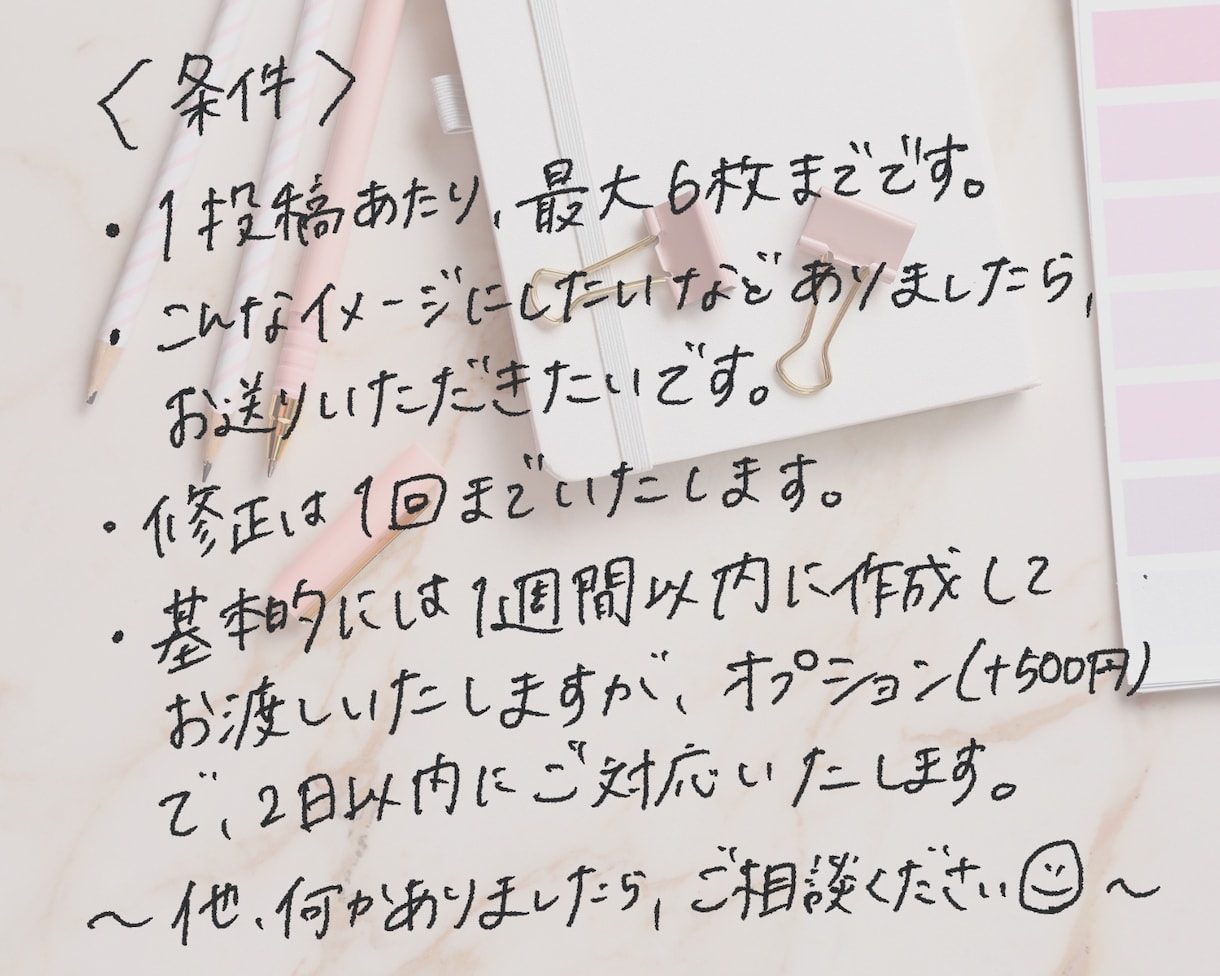 〈条件〉
・1投稿あたり、最大6枚までです。
・こんなイメージにしたいなどありましたら、
お送りいただきたいです。
・修正は1回までいたします。
・基本的には1週間以内に作成して
お渡しいたしますが、オプション(+500円)
で、2日以内にご対応いたします。
～他、何かありましたら、ご相談ください☺～